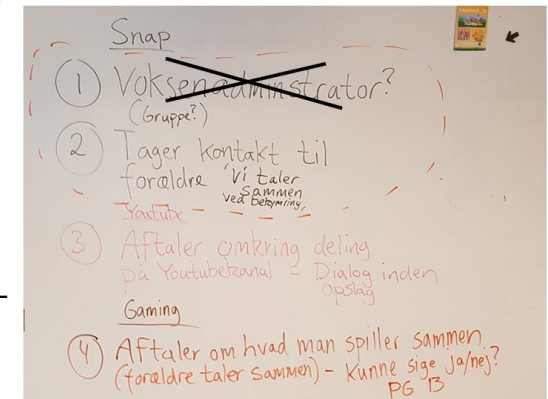 Snap
1 Voksenadminstrator?
(Gruppe?)
2 Tager kontakt til
forældre 'Vi taler
sammen
ved bekymring,
Youtube
3 Aftaler omkring deling
på Youtubekanal - Dialog inden
opslag
Gaming
4 Aftaler om hvad man spiller sammen
(forældre taler sammen) - Kunne sige ja/nej?
PG 13